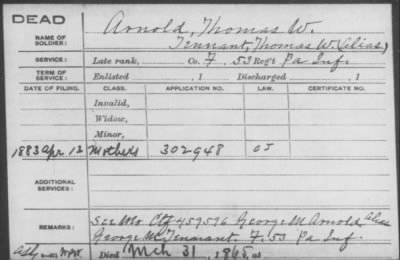 DEAD
NAME OF SOLDIER: Arnold, Thomas W.
Tennant, Thomas W. (Alias)
SERVICE: Late rank, Co. F. 53 Reg't Pa Inf.
TERM OF SERVICE: Enlisted , 1 Discharged , 1
DATE OF FILING. CLASS. APPLICATION NO. LAW. CERTIFICATE NO.
Invalid,
Widow,
Minor,
1883 Apr 12 Mothers 302948
ADDITIONAL SERVICES:
REMARKS: See Mo Ctf 459596 George M Arnold, alias
George M Tennant. F. 53 Pa Inf.
Died Mch 31, 1865, at